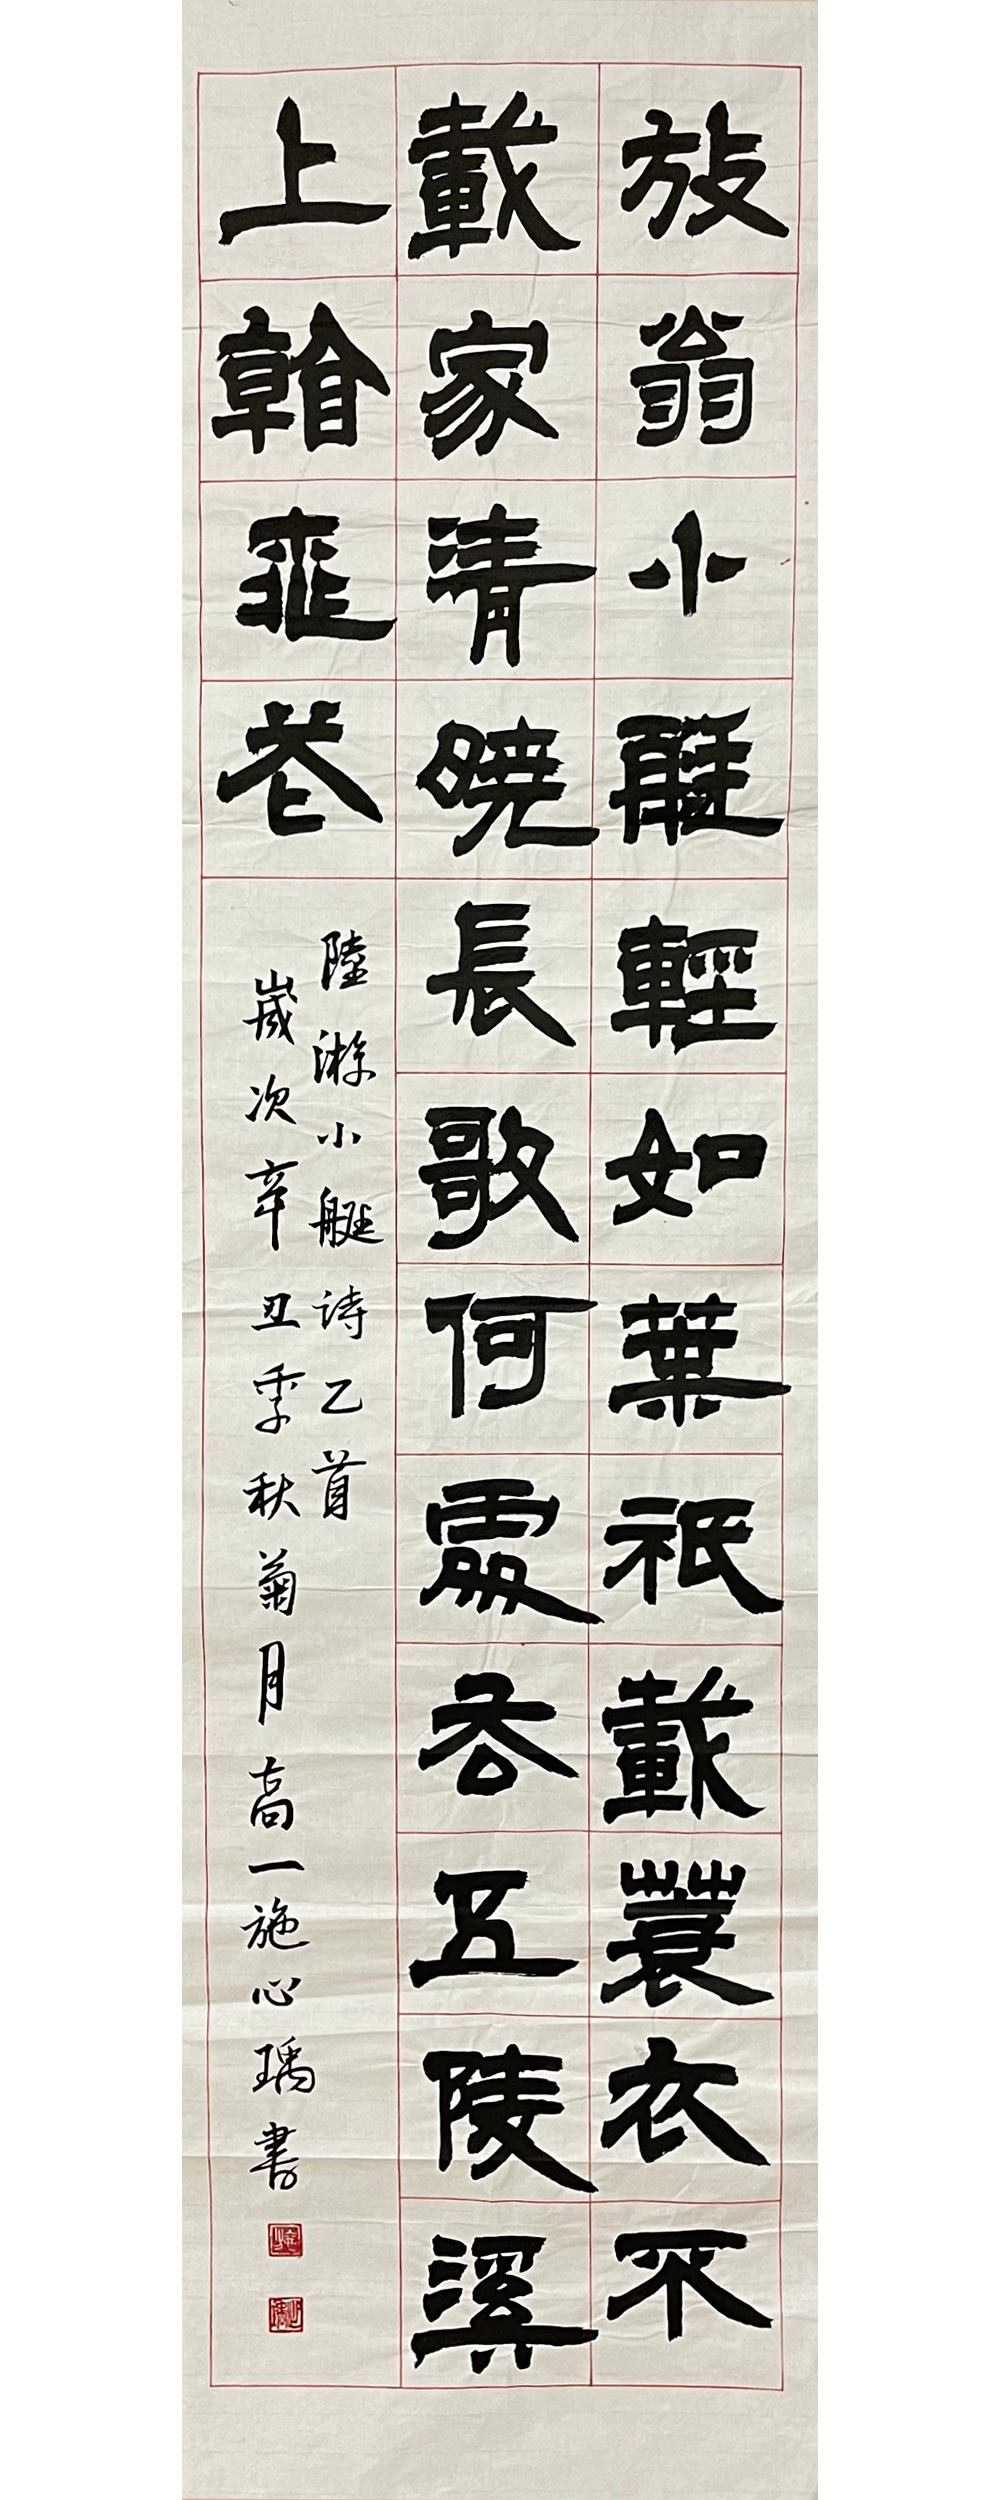 放翁小艇輕如葉祇載蓑衣不
載家清曉長歌何處去武陵溪
上看桃花
陸游小艇诗乙首
嵗次辛丑季秋菊月高一施心瑀書